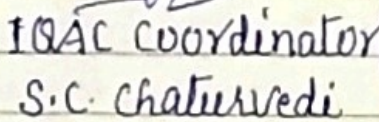 IQAC Coordinator
S.C. Chaturvedi